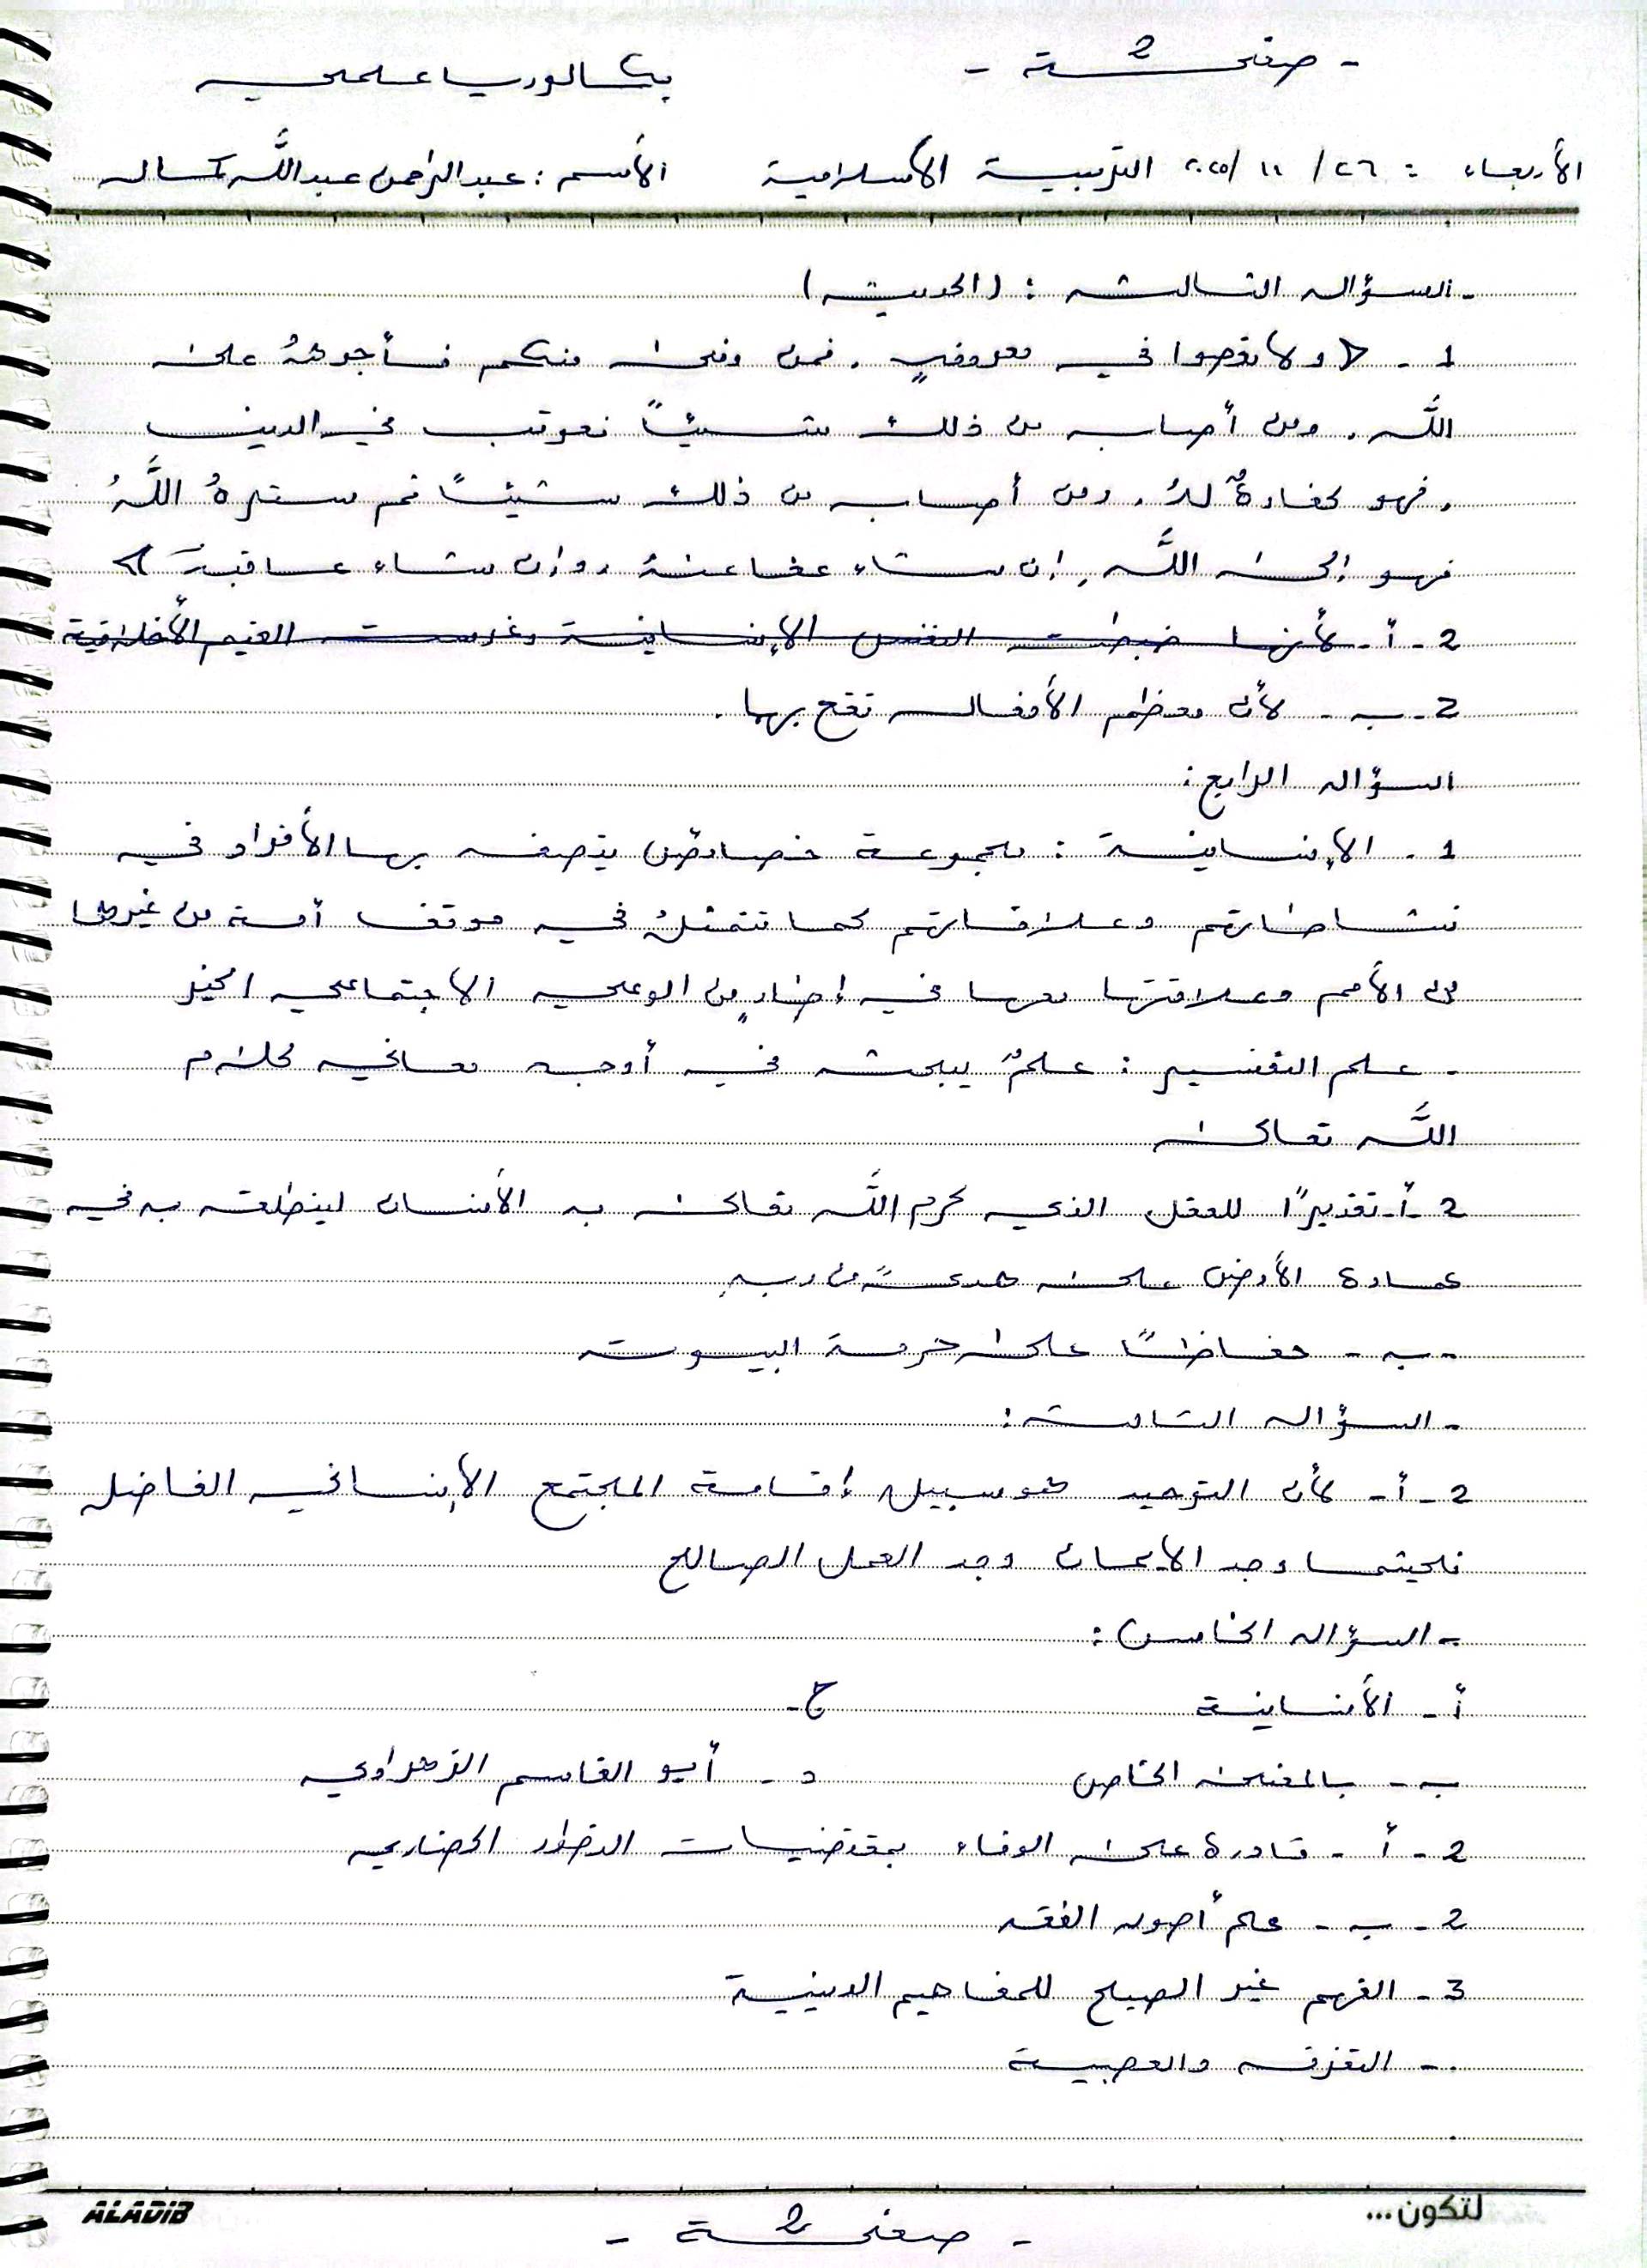 - صفحـ2ـة -
بكالوريا علمي
الأربعاء : ٢٦ / ١١ /٢٠٢٥ التربيــة الأسلامية الأسم : عبد الرحمن عبد اللَّه
- السؤال الثالث : (الحديث)
1 - > ولا تعصوا في معروفٍ . فمن وفى منكم فأجرهُ على
اللَّه . ومن أصاب من ذلك شيئاً فعوقب في الدنيا
. فهو كفارةٌ لهُ . ومن أصاب من ذلك شيئاً ثم سترهُ اللَّهُ
فهو إلى اللَّهِ . إن شاء عفا عنهُ . وإن شاء عاقبهَ <
2 - أ - لأنها ضبطت النفس الإنسانية وغرست القيم الأخلاقية
2 - ب - لأن معظم الأفعال تقع بهما .
السؤال الرابع :
1 - الإنسانية : مجموعة خصائص يتصف بها الأفراد في
نشاطاتهم وعلاقاتهم كما تتمثلُ في موقف أمة من غيرها
من الأمم وعلاقتها معها في إطارٍ من الوعي الاجتماعي الخير
- علم التفسير : علمٌ يبحث في أوجه معاني كلام
اللَّه تعالى
2 - أ - تقديرًا للعقل الذي كرم اللَّه تعالى به الأنسان لينطلق به في
عمارة الأرض على هدىً من ربهِ
- ب - حفاظاً على حرمة البيوت
- السؤال الثالث :
2 - أ - لأن التوحيد هو سبيل إقامة المجتمع الأنساني الفاضل
فحيثما وجد الأيمان وجد العمل الصالح
- السؤال الخامس :
أ - الأنسانية ج -
ب - بالمعنى الخاص د - أبو القاسم الزهراوي
2 - أ - قادرة على الوفاء بمقتضيات التطور الحضاري
2 - ب - علم أصول الفقه
3 - الفهم غير الصيلح للمفاهيم الدينية
- التفرقه والعصبية
لتكون...
ALADIB
- صفحـ2ـة -